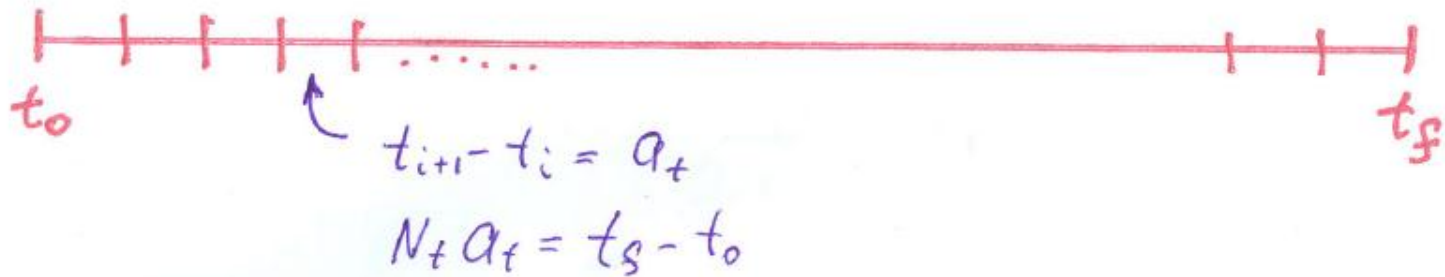 ......
t₀ t_f
t_{i+1} - t_i = a_t
N_t a_t = t_f - t₀